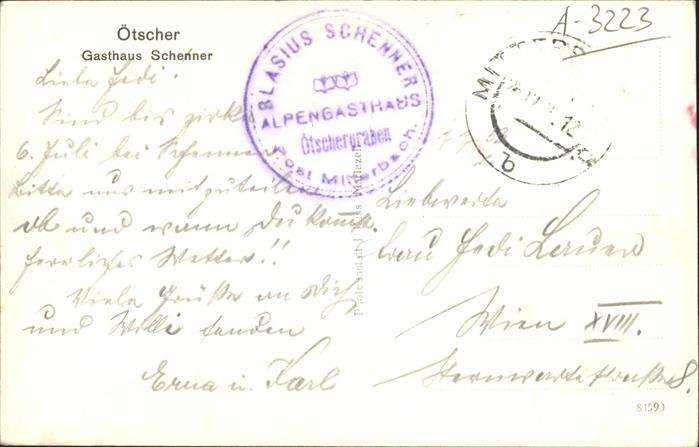 Ötscher
Gasthaus Schenner
A-3223
BLASIUS SCHENNERS
ALPENGASTHAUS
Ötschergraben
Post Mitterbach.
MITTERB
b
Liebe Fedi!
Sind bis zirka
6. Juli bei Schenner
bitte uns mitzuteilen
ob und wann Du kommst.
herrliches Wetter!!
Viele Grüße an Dich
und Willi senden
Erna u. Karl
Liebwerte
Frau Fedi
Wien XVIII.
Sternwartestraße
81593